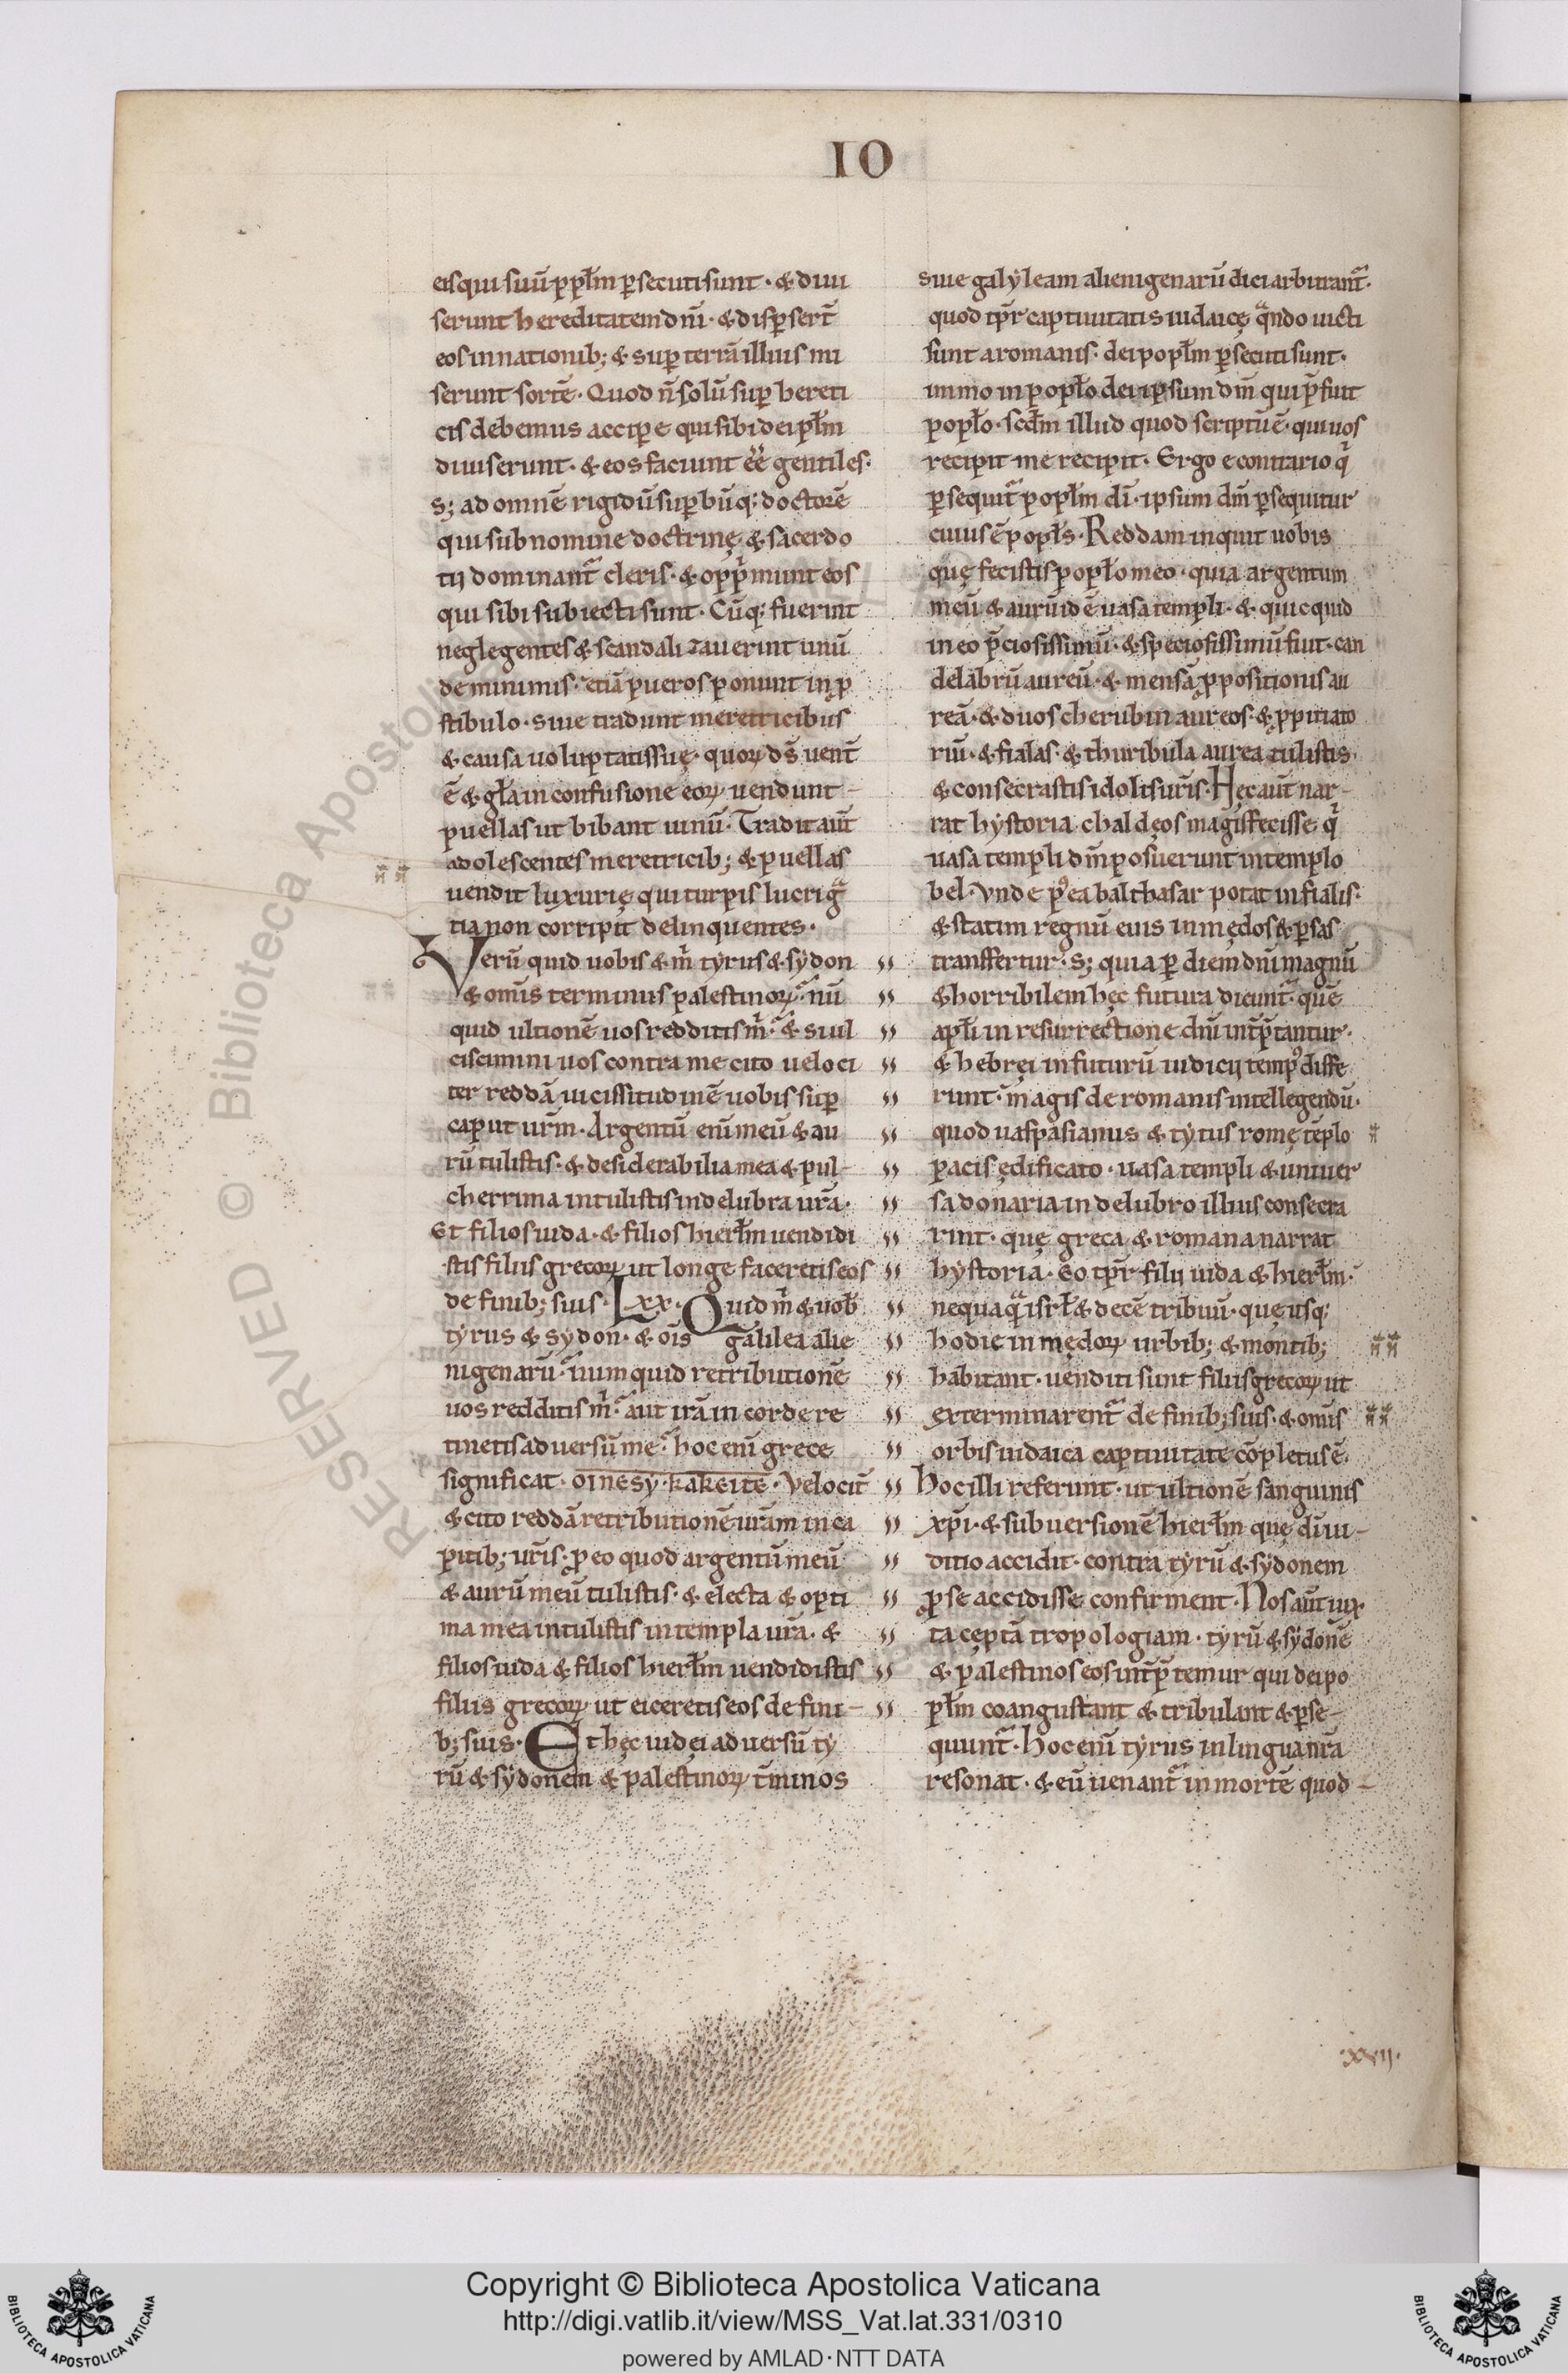 IO
eisqui suū ꝓpłm ꝑsecuti sunt · & diui
serunt hereditatem dn̄i · & disꝑsert̄
eos in nationib; & suꝑ terrā illius mi
serunt sortē · Quod n̄ solū suꝑ hereti
cis debemus acciꝑe qui sibi dei płm
diuiserunt · & eos faciunt ēē gentiles ·
s; ad omnē rigidū suꝑbūq; doctorē
qui sub nomine doctrinę & sacerdo
tij dominant̄ cleris · & opp̄munt eos
qui sibi subiecti sunt · Cūq; fuerint
neglegentes & scandalizauerint unū
de minimis · etiā pueros ponunt in ꝓ
stibulo · siue tradunt meretricibus
& causa uoluptatis suę · quoꝝ ds̄ uent̄
ē & gła in confusione eoꝝ uendunt –
puellas ut bibant uinū · Tradit aūt
adolescentes meretricib; & puellas
uendit luxurię qui turpis lucri gᵃ
tia non corripit delinquentes ·
Verū quid uobis & m̄ tyrus & sydon
& omīs terminus palestinoꝝ · nū
quid ultionē uos redditis m̄ · & si ul
ciscimini uos contra me cito ueloci
ter reddā uicissitudinē uobis suꝑ
caput ur̄m · Argentū eni meū & au
rū tulistis · & desiderabilia mea & pul –
cherrima intulistis in delubra ur̄a ·
Et filios iuda · & filios hierłm uendidi
stis filiis grecoꝝ ut longe faceretis eos
de finib; suis · Lxx · Quid m̄ & uob̄
tyrus & sydon · & oīs galilea alie
nigenarū · numquid retributionē
uos redditis m̄ · aut irā in corde re
tinetis aduersū me · hoc eni grece
significat · oinesy · kakeite · Velocit̄
& cito reddā retributionē ur̄am in ca
pitib; ur̄is · pro eo quod argentū meū
& aurū meū tulistis · & electa & opti
ma mea intulistis in templa ur̄a · &
filios iuda & filios hierłm uendidistis
filiis grecoꝝ ut eiceretis eos de fini –
b; suis · Et hęc iudei aduersū ty
rū & sydonem & palestinoꝝ t̄minos
siue galyleam alienigenarū dici arbitrant̄ ·
quod ꝓpt̄ captiuitatis iudaicę qᵃndo uicti
sunt a romanis · dei popłm ꝑsecuti sunt ·
immo in popło dei ipsum dm̄ qui p̄fuit
popło · scdm̄ illud quod scriptū ē · qui uos
recipit me recipit · Ergo e contrario qͥ
ꝑsequit̄ popłm di · ipsum dm̄ ꝑsequitur
cuius ē popłs · Reddam inquit uobis
quę fecistis popło meo · quia argentum
meū & aurū id ē uasa templi · & quicquid
in eo p̄ciosissimū · & speciosissimū fuit · can
delabrū aureū · & mensā ꝓpositionis au
reā · & duos cherubin aureos · & ꝓpitiato
riū · & fialas · & thuribula aurea tulistis ·
& consecrastis idolis ur̄is · Hęc aūt nar –
rat hystoria chaldęos magis fecisse qͥ
uasa templi dn̄i posuerunt in templo
bel · Vnde p⁹ea balthasar potat in fialis ·
& statim regnū eius in mędos & ꝑsas
transfertur · s; quia ꝑ diem dn̄i magnū
& horribilem hęc futura dicunt̄ · quē
apłi in resurrectione dn̄i int̄p̄tantur ·
& hebręi in futurū iudicij temp⁹ diffe
runt · magis de romanis intellegendū ·
quod uaspasianus & tytus romę tēplo
pacis ędificato · uasa templi & uniuer
sa donaria in delubro illius consecra
rint · quę greca & romana narrat
hystoria · Eo ꝓpt̄ filij iuda & hierłm ·
nequaqᵃ isrł & decē tribuū · quę usq;
hodie in mędoꝝ urbib; & montib;
habitant · uenditi sunt filiis grecoꝝ ut
exterminarent̄ de finib; suis · & omīs
orbis iudaica captiuitate cōpletus ē ·
Hoc illi referunt · ut ultionē sanguinis
xp̄i · & subuersionē hierłm quę dī ui –
ditio accidit · contra tyrū & sydonem
ꝓ se accidisse confirment · Nos aūt iux
ta cęptā tropologiam · tyrū & sydonē
& palestinos eos int̄p̄temur qui dei po
płm coangustant & tribulant & ꝑse –
quunt̄ · Hoc eni tyrus in lingua nr̄a
resonat · & eū uenant̄ in mortē quod –
·xvij·
RESERVED © Biblioteca Apostolica Vaticana
Copyright © Biblioteca Apostolica Vaticana
http://digi.vatlib.it/view/MSS_Vat.lat.331/0310
powered by AMLAD·NTT DATA
BIBLIOTECA APOSTOLICA VATICANA
BIBLIOTECA APOSTOLICA VATICANA